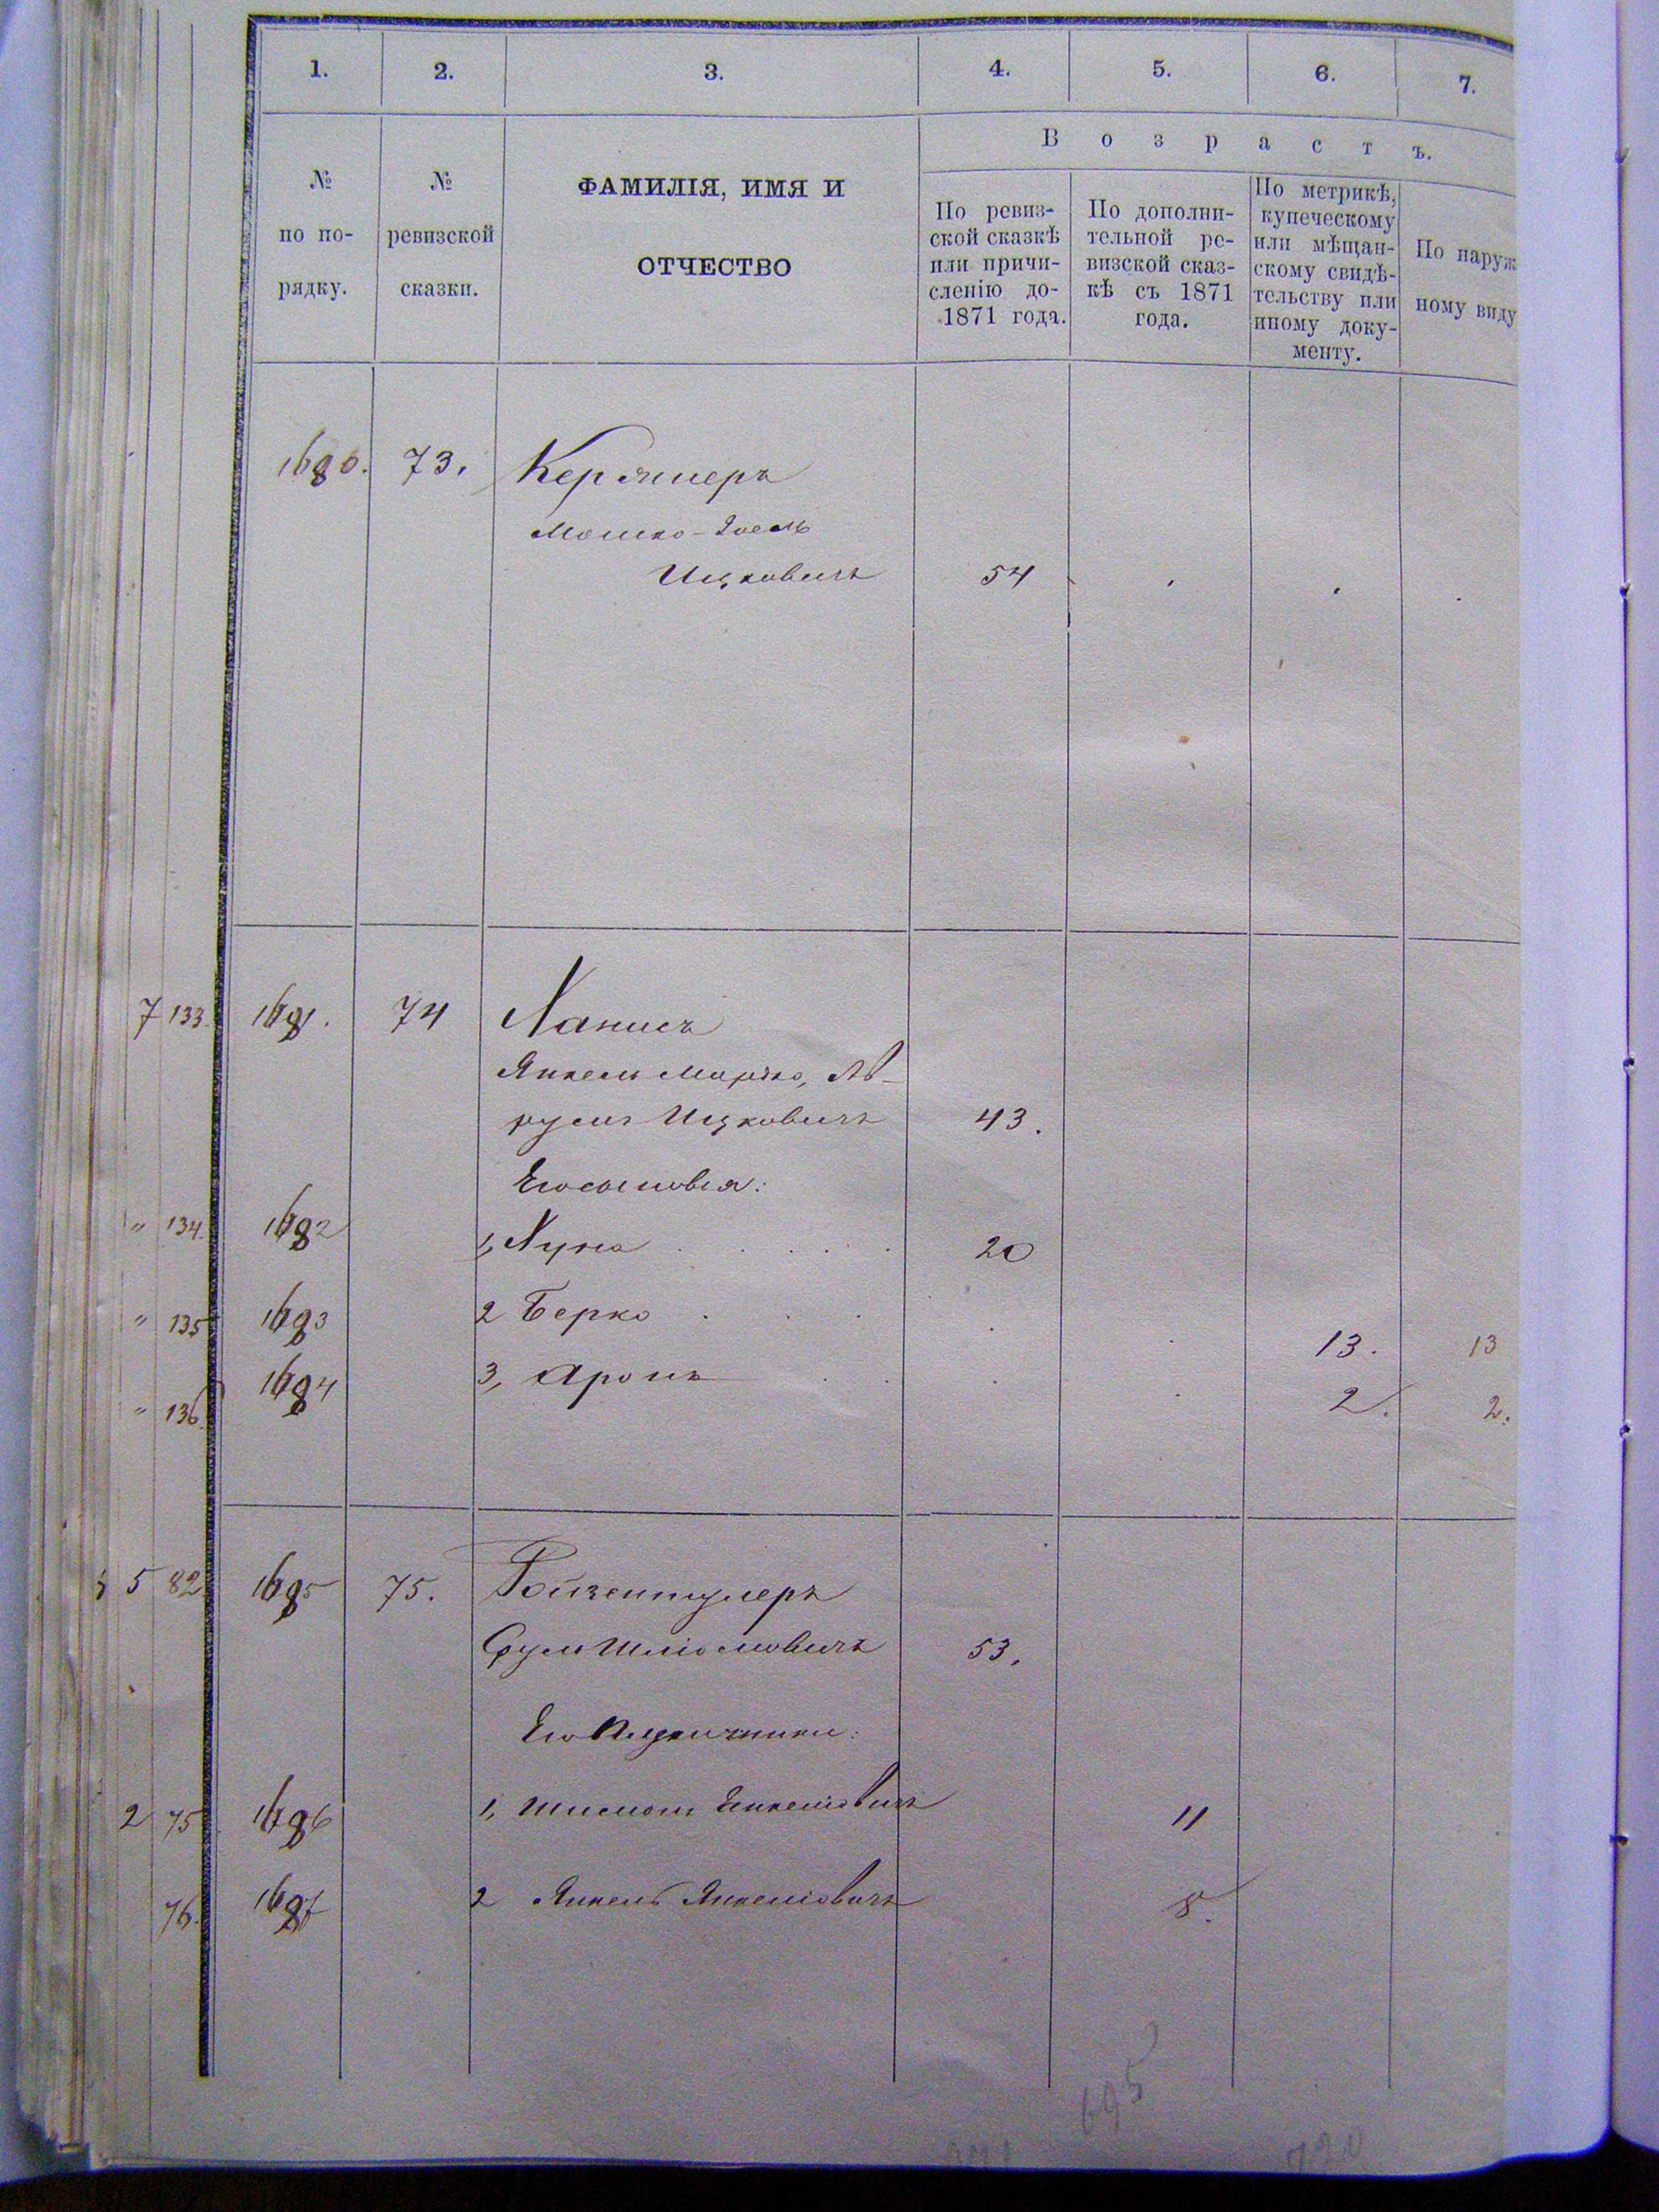 1. 2. 3. 4. 5. 6. 7.
Возрастъ.
№ по порядку.
№ ревизской сказки.
ФАМИЛІЯ, ИМЯ И
ОТЧЕСТВО
По ревиз-
ской сказкѣ
или причи-
сленію до-
1871 года.
По дополни-
тельной ре-
визской сказ-
кѣ съ 1871
года.
По метрикѣ,
купеческому
или мѣщан-
скому свидѣ-
тельству или
иному доку-
менту.
По наруж
ному виду
1680. 73. Кержнеръ
Мошко-Іоель
Ицковичъ 54
7 133. 1681. 74 Ханисъ
Янкель Морко, Ав-
румъ Ицковичъ 43.
Его сыновья:
" 134. 1682 1, Хуна 20
" 135 1683 2 Берко 13. 13
" 136. 1684 3, Аронъ 2. 2.
5 82 1685 75. Ройзентулеръ
Срул Шліомовичъ 53.
Его племянники:
2 75 1686 1, Шлиома Янкеліовичъ 11
76. 1687 2 Янкель Янкеліовичъ 8.
695
720